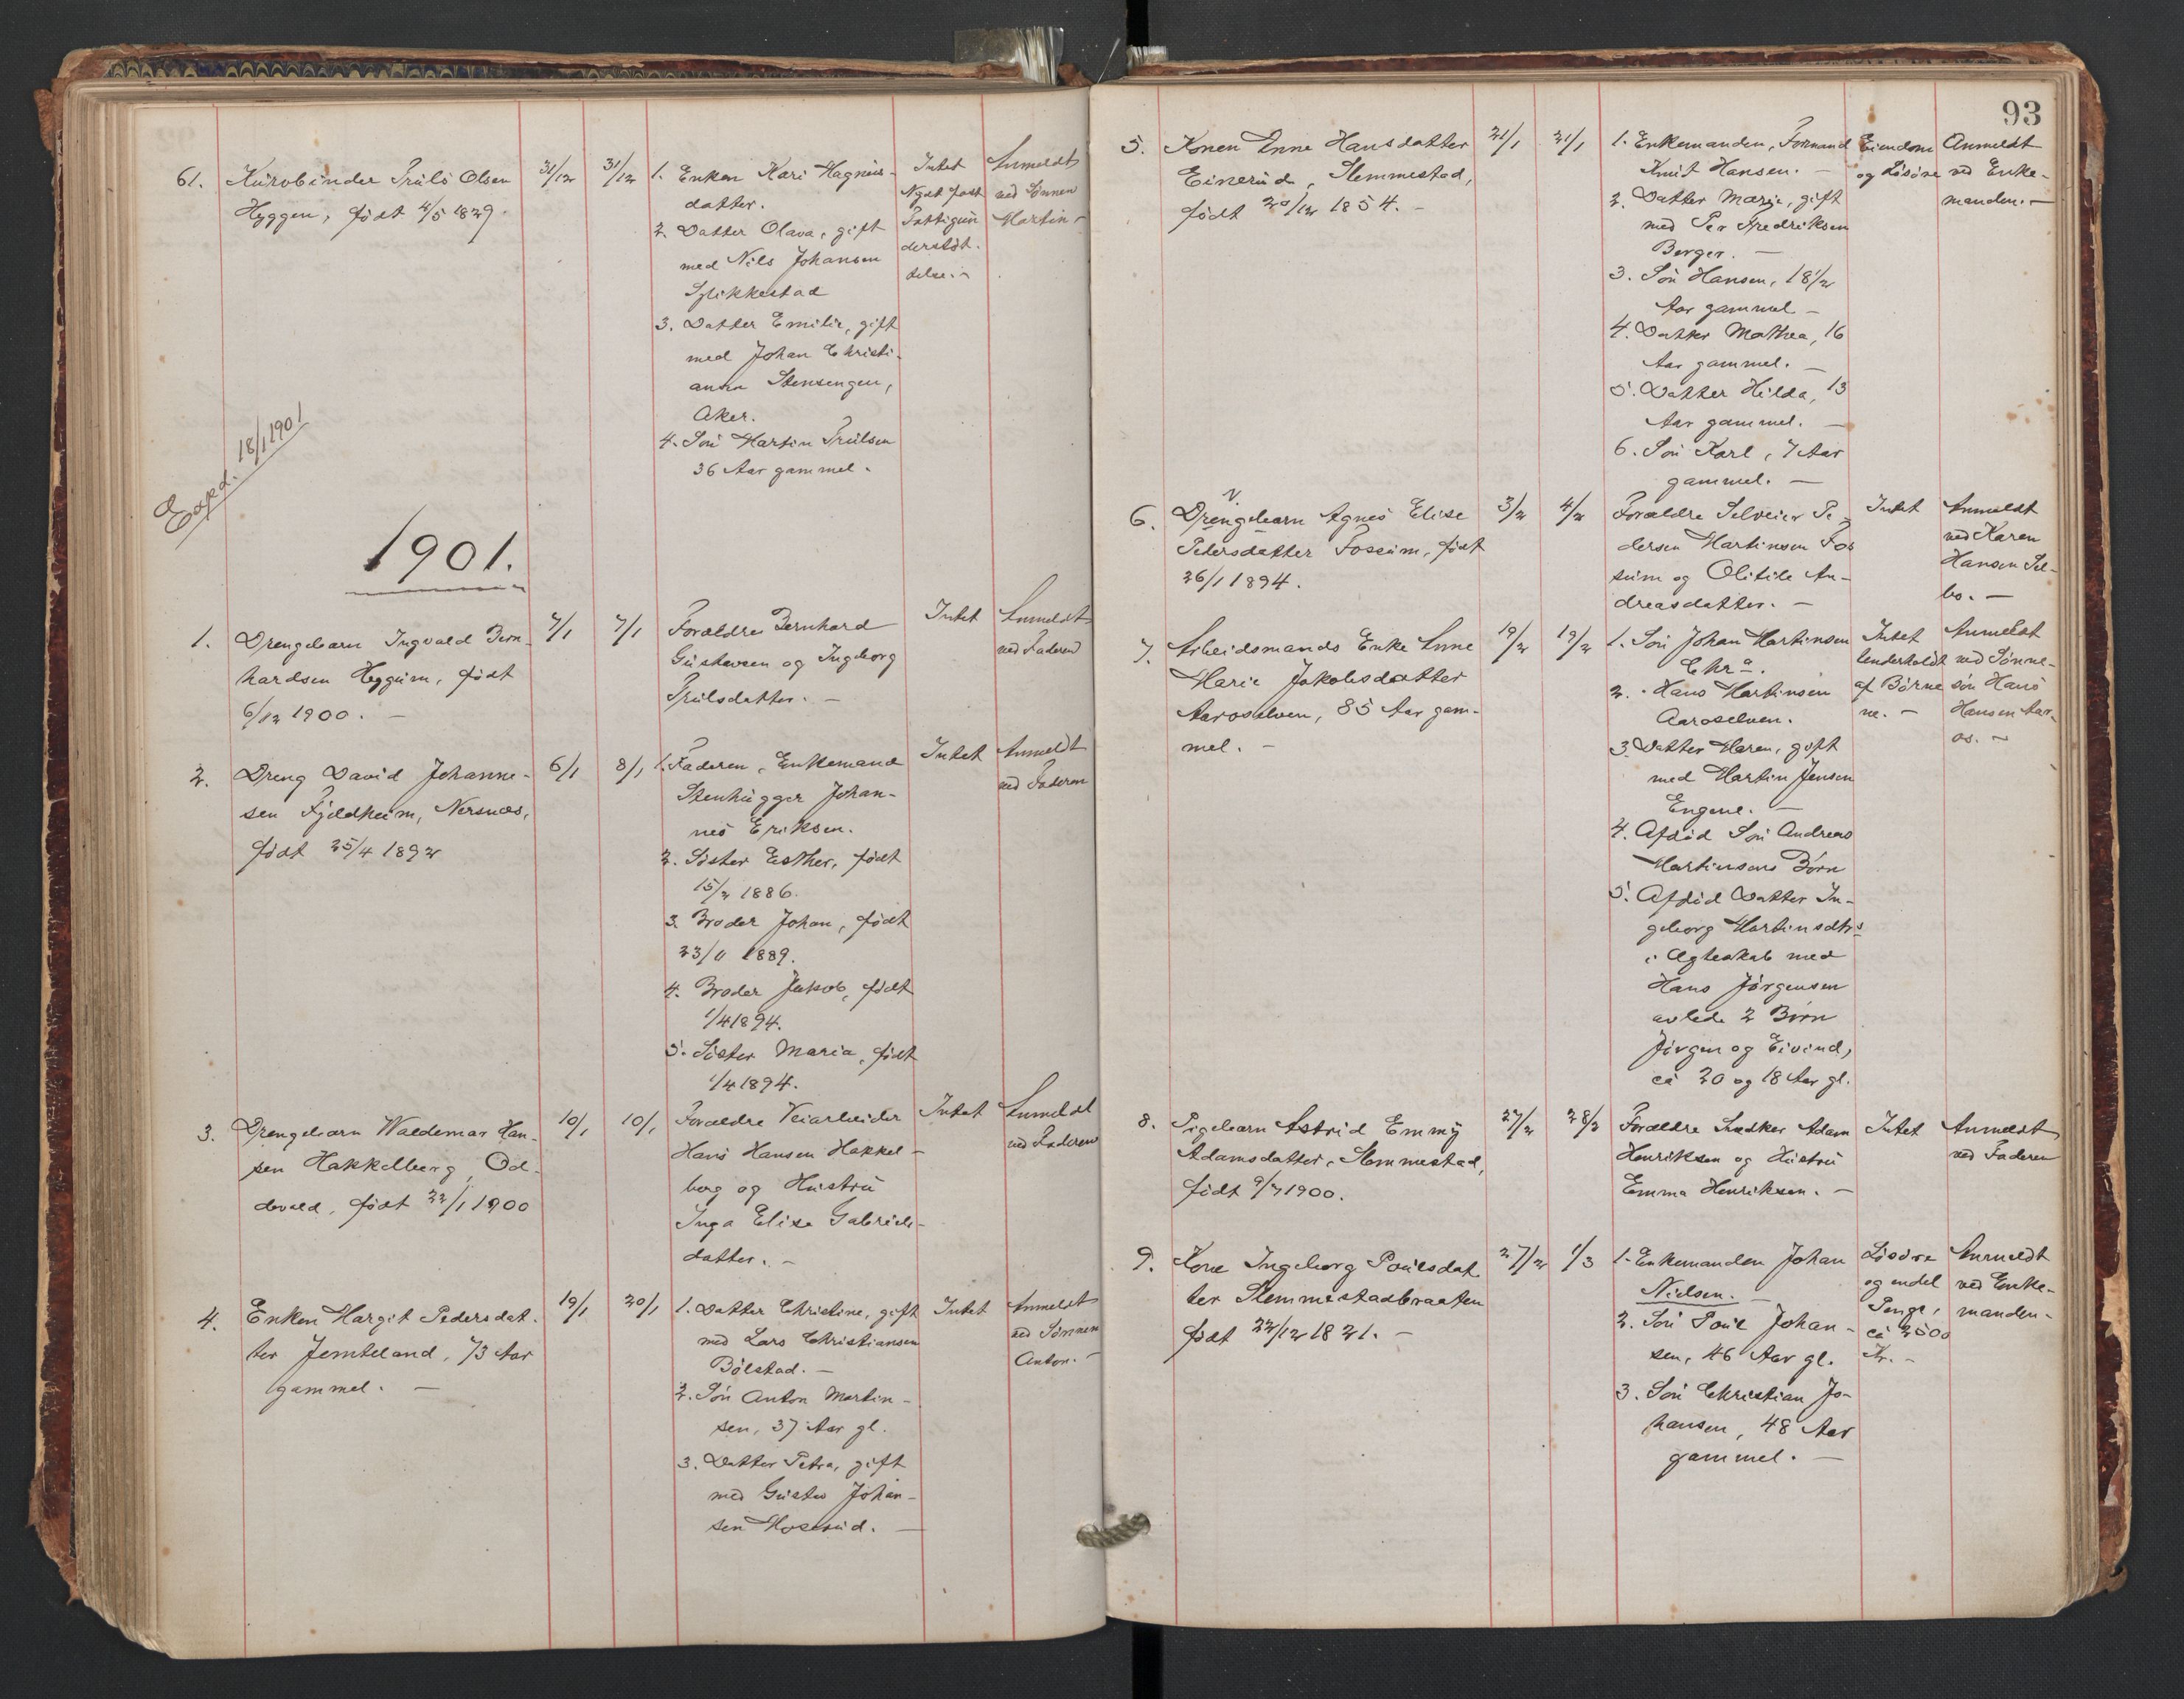 61. Kurvbinder Truls Olsen
Hyggen, født 4/5 1829.
31/12
31/12
1. Enken Kari Magnus-
datter.
2. Datter Olava, gift
med Nils Johansen
Slikkestad
3. Datter Emilie, gift
med Johan Christi-
ansen Stensengen,
Aker.
4. Søn Martin Trulsen
36 Aar gammel.
Intet
Nydt fast
Fattigun
derstøt-
telse.-
Anmeldt
ved Sønnen
Martin-
Exped. 18/1 1901
1901.
1. Drengebarn Ingvald Bern-
hardsen Heggum, født
6/12 1900. -
7/1
7/1
Forældre Bernhard
Gustavsen og Ingeborg
Trulsdatter. -
Intet
Anmeldt
ved Faderen
2. Dreng David Johanne-
sen Fjeldheim, Nersnæs,
født 25/4 1892
6/1
8/1
1. Faderen, Enkemand
Stenhugger Johan-
nes Eriksen.
2. Søster Esther, født
15/2 1886.
3. Broder Johan, født
23/11 1889.
4. Broder Jakob, født
1/4 1894.
5. Søster Maria, født
1/4 1894.
Intet
Anmeldt
ved Faderen
3. Drengebarn Waldemar Han-
sen Hakkelberg, Od-
devald, født 22/1 1900
10/1
10/1
Forældre Veiarbeider
Hans Hansen Hakkel-
berg og Hustru
Inga Elise Gabriels-
datter. -
Intet
Anmeldt
ved Faderen
4. Enken Margit Pedersdat-
ter Jemteland, 73 Aar
gammel. -
19/1
20/1
1. Datter Christine, gift
med Lars Christiansen
Bølstad. -
2. Søn Anton Martin-
sen, 37 Aar gl.
3. Datter Petra, gift
med Gustav Johan-
sen Moserud. -
Intet
Anmeldt
ved Sønnen
Anton. -
93
5. Konen Anne Hansdatter
Einerud, Slemmestad,
født 20/12 1854. -
21/1
21/1
1. Enkemanden, Formand
Knut Hansen. -
2. Datter Marje, gift
med Per Fredriksen
Berger. -
3. Søn Hansen, 18 1/2
Aar gammel -
4. Datter Mathea, 16
Aar gammel. -
5. Datter Hilda, 13
Aar gammel. -
6. Søn Karl, 7 Aar
gammel. -
Eiendom
og Løsøre
Anmeldt
ved Enke-
manden. -
6. Drengebarn Agnes Elise
Petersdatter Fossum, født
26/1 1894.
3/2
4/2
Forældre Pe-
dersen Martinsen Fos
sum og Olitile An-
dreasdatter. -
Intet
Anmeldt
ved Karen
Hansen Sel-
bo. -
7. Arbeidsmands Enke Anne
Marie Jakobsdatter
Aaroselven, 85 Aar gam-
mel. -
19/2
19/2
1. Søn Johan Martinsen
Chra.
2. - Hans Martinsen
Aaroselven.
3. Datter Maren, gift
med Martin Jensen
Engene. -
4. Afdød Søn Andreas
Martinsens Børn
5. Afdød Datter In-
geborg Martinsdtrs
i Ægteskab med
Hans Jørgensen
avlede 2 Børn
Jørgen og Eivind,
ca 20 og 18 Aar gl.
Intet
Underholdt
af Børne
ne. -
Anmeldt
ved Sønne-
søn Hans
Hansen Aar-
os. -
8. Pigebarn Astrid Emmy
Adamsdatter, Slemmestad,
født 9/7 1900.
27/2
28/2
Forældre Snedker Adam
Henriksen og Hustru
Emma Henriksen. -
Intet
Anmeldt
ved Faderen
9. Kone Ingeborg Poulsdat
ter Slemmestadbraaten
født 22/12 1821. -
27/2
1/3
1. Enkemanden Johan
Nielsen. -
2. Søn Poul Johan-
sen, 46 Aar gl.
3. Søn Christian Jo-
hansen, 48 Aar
gammel. -
Løsøre
og endel
Penge,
ca 2500
Kr. -
Anmeldt
ved Enke-
manden-